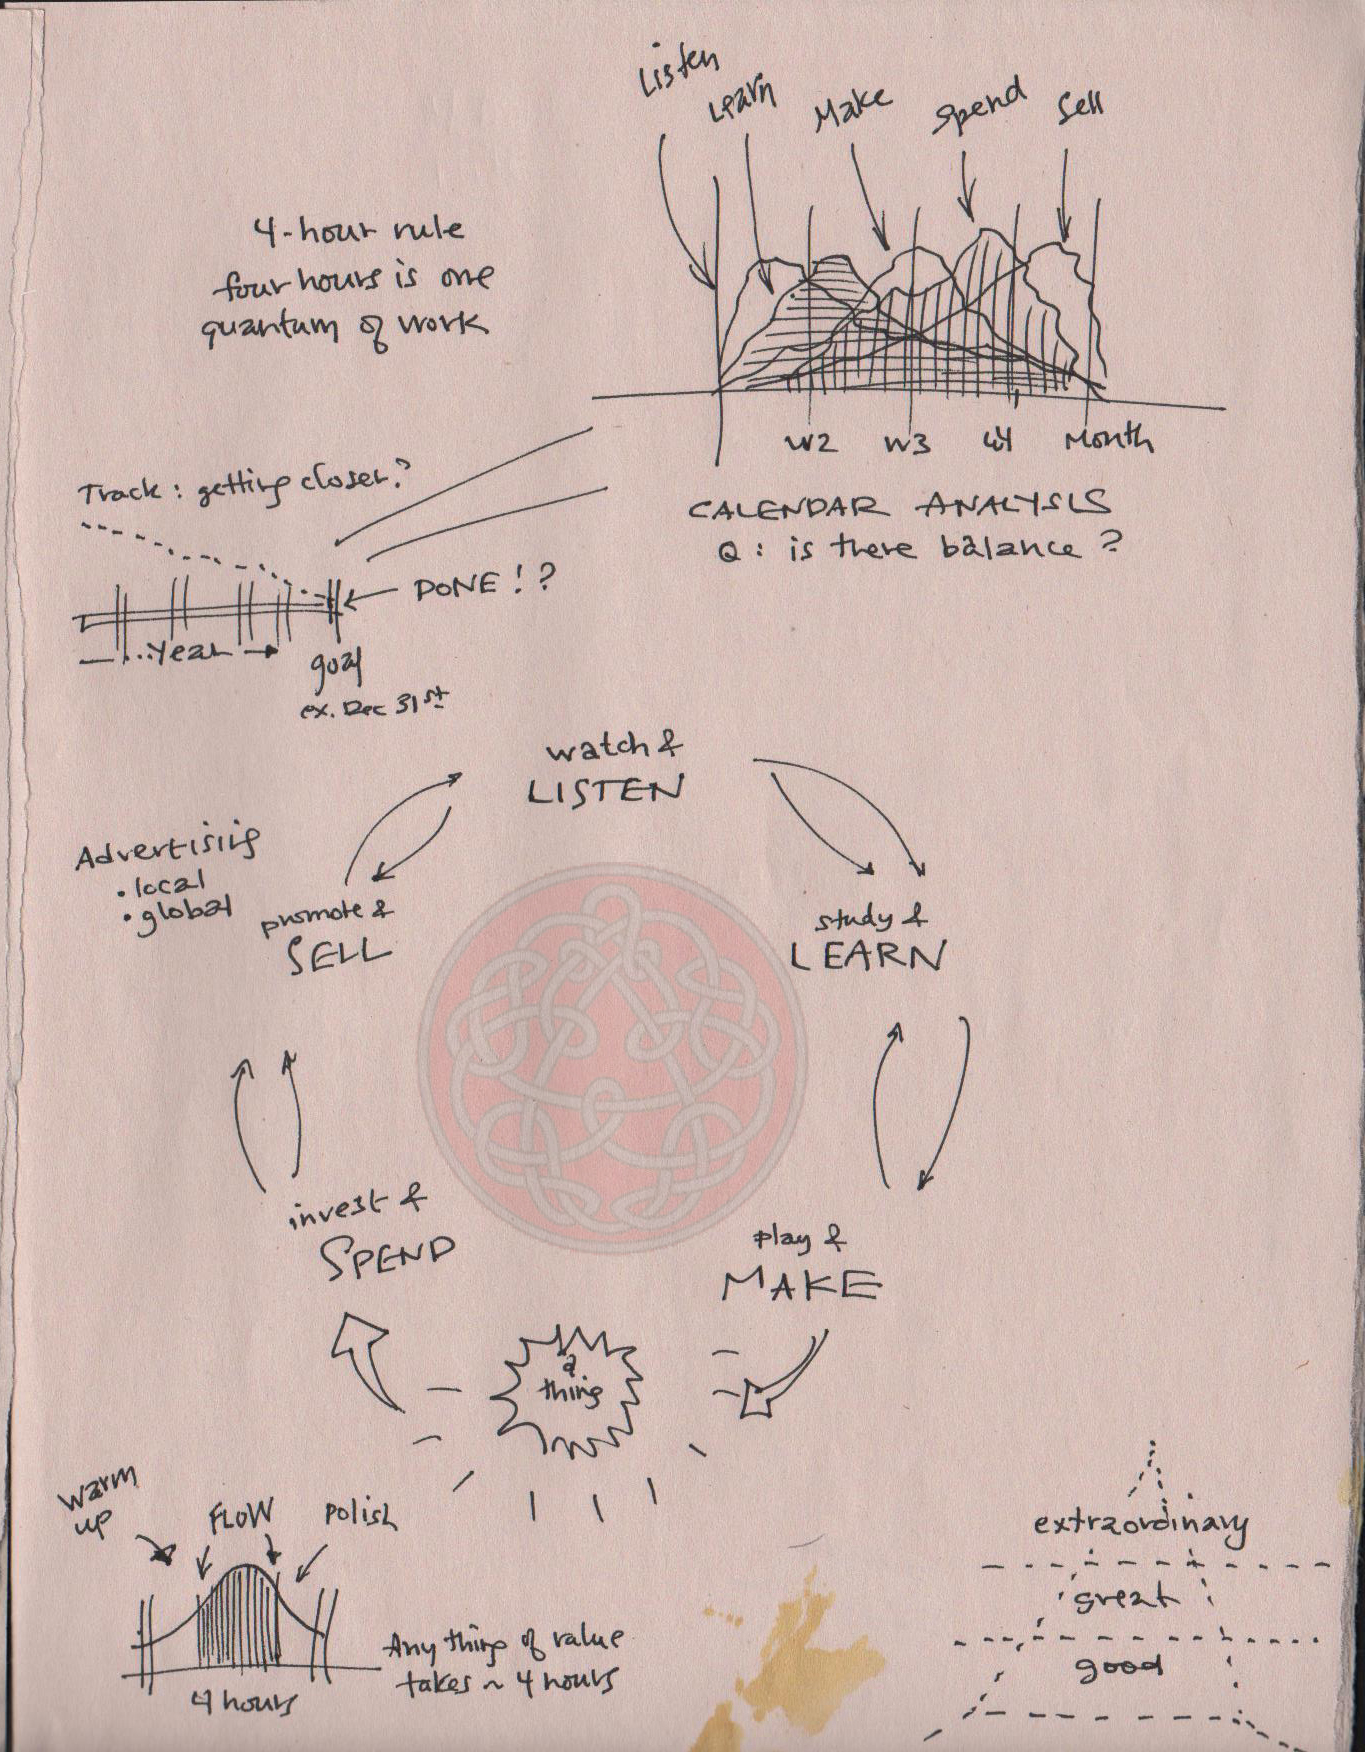 Listen
Learn
Make
Spend
Sell
4-hour rule
four hours is one
quantum of work
W2 W3 W4 Month
CALENDAR ANALYSIS
Q: is there balance?
Track: getting closer?
DONE!?
...Year
goal
ex. Dec 31st
watch &
LISTEN
Advertising
• local
• global
promote &
SELL
study &
LEARN
invest &
SPEND
play &
MAKE
a
thing
warm
up
FLOW
Polish
4 hours
Any thing of value
takes ~ 4 hours
extraordinary
great
good